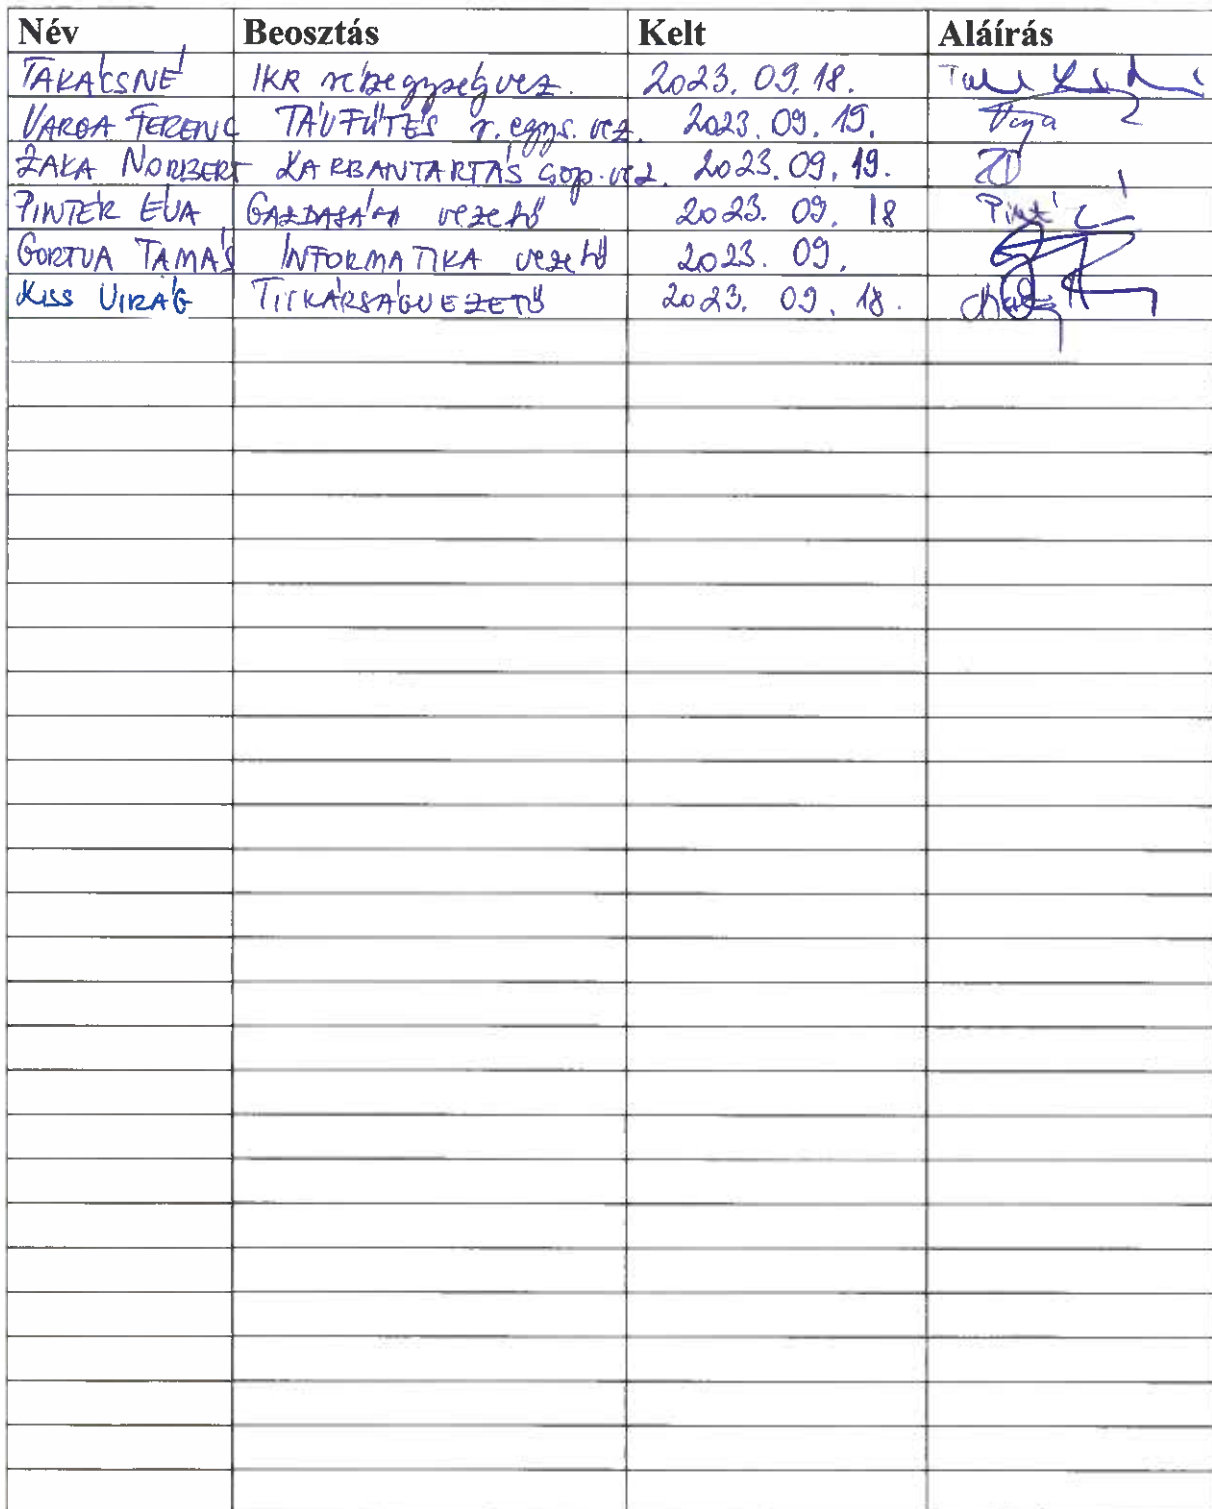 Név Beosztás Kelt Aláírás
TAKÁCSNÉ IKR részegység vez. 2023. 09. 18.
VARGA FERENC TÁVFŰTÉS r. egys. vez. 2023. 09. 19. Varga
ZAKA NORBERT KARBANTARTÁS csop. vez. 2023. 09. 19.
PINTÉR ÉVA GAZDASÁGI vezető 2023. 09. 18
GORTVA TAMÁS INFORMATIKA vezető 2023. 09.
KISS VIRÁG TITKÁRSÁGVEZETŐ 2023. 09. 18.